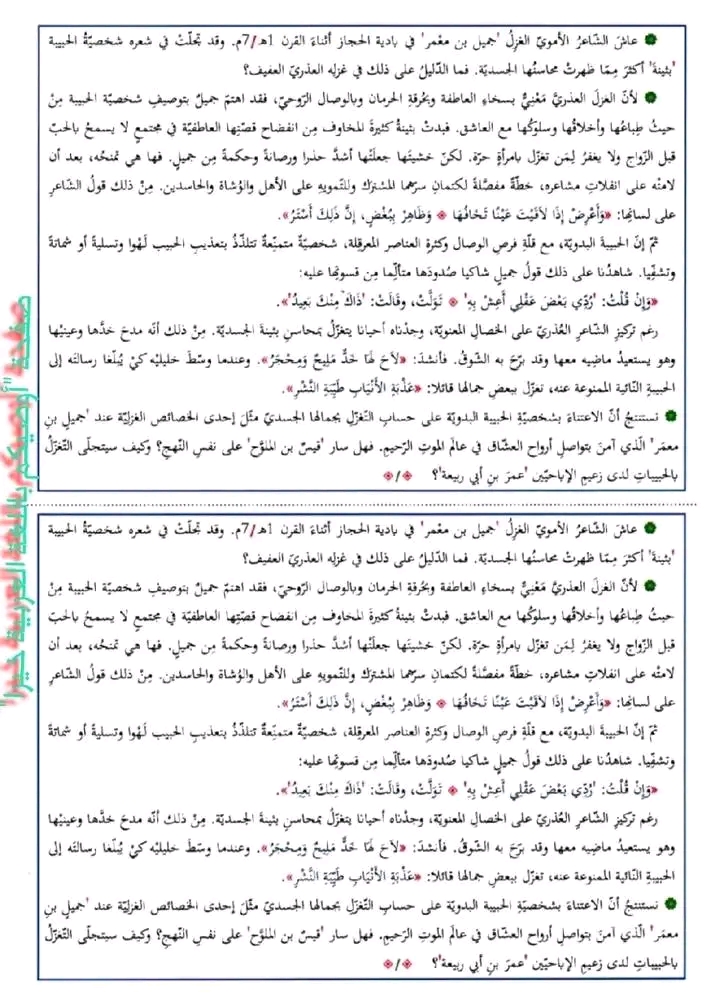 عاش الشّاعرُ الأمويّ الغزِلُ 'جميل بن معْمر' في بادية الحجاز أثناءَ القرن 1هـ/7م. وقد تجلّتْ في شعره شخصيّةُ الحبيبة
'بثينةَ' أكثرَ مِمّا ظهرتْ محاسنُها الجسديّة. فما الدّليلُ على ذلك في غزلِه العذريّ العفيف؟
لأنّ الغزلَ العذريَّ مَعْنِيٌّ بسخاءِ العاطفة وبحُرقةِ الحرمان وبالوصال الرّوحيّ، فقد اهتمّ جميلٌ بتوصيفِ شخصيّة الحبيبة مِنْ
حيثُ طِباعُها وأخلاقُها وسلوكُها مع العاشق. فبدتْ بثينةُ كثيرةَ المخاوف مِن انفضاح قصّتِها العاطفيّة في مجتمعٍ لا يسمحُ بالحبّ
قبل الزّواج ولا يغفرُ لِمَن تغزّل بامرأةٍ حرّة. لكنّ خشيتَها جعلَتْها أشدَّ حذرا ورصانةً وحكمةً مِن جميلٍ. فها هي تمنحُه، بعد أن
لامتْه على انفلاتِ مشاعره، خطّةً مفصَّلةً لكتمانِ سرِّهما المشترَك وللتّمويهِ على الأهل والوُشاة والحاسدين. مِنْ ذلك قولُ الشّاعرِ
على لسانِها: «وَأَعْرِضْ إِذَا لاَقَيْتَ عَيْنًا تَخَافُهَا ❖ وَظَاهِرْ بِبُغْضٍ، إِنَّ ذَلِكَ أَسْتَرُ».
ثمّ إنّ الحبيبةَ البدويّة، مع قلّةِ فرصِ الوصال وكثرةِ العناصر المعرقِلة، شخصيّةٌ متمنّعةٌ تتلذّذُ بتعذيبِ الحبيب لَهْوا وتسليةً أو شماتةً
وتشفّيا. شاهدُنا على ذلك قولُ جميلٍ شاكيا صُدودَها متألّما مِن قسوتِها عليه:
«وَإِنْ قُلْتُ: 'رُدِّي بَعْضَ عَقْلِي أَعِشْ بِهِ' ❖ تَوَلَّتْ، وقَالَتْ: 'ذَاكَ مِنْكَ بَعِيدُ'».
رغم تركيزِ الشّاعرِ العُذريّ على الخصالِ المعنويّة، وجدْناه أحيانا يتغزّلُ بمحاسنِ بثينةَ الجسديّة. مِنْ ذلك أنّه مدحَ خدَّها وعينيْها
وهو يستعيدُ ماضيه معها وقد برّح به الشّوقُ. فأنشدَ: «لاَحَ لَهَا خَدٌّ مَلِيحٌ وَمِحْجَرُ». وعندما وسّطَ خليليْه كيْ يُبلّغا رسالتَه إلى
الحبيبةِ النّائية الممنوعة عنه، تغزّل ببعضِ جمالها قائلا: «عَذْبَةِ الأَنْيَابِ طَيِّبَةِ النَّشْرِ».
نستنتجُ أنّ الاعتناءَ بشخصيّة الحبيبة البدويّة على حسابِ التّغزّلِ بجمالها الجسديّ مثّلَ إحدى الخصائص الغزليّة عند 'جميلِ بنِ
معمَر' الّذي آمنَ بتواصلِ أرواح العشّاق في عالمِ الموتِ الرّحيم. فهل سار 'قيسُ بن الملوَّح' على نفسِ النّهج؟ وكيف سيتجلّى التّغزّلُ
بالحبيباتِ لدى زعيمِ الإباحيّين 'عمرَ بنِ أبي ربيعة'؟ ❖/❖
عاش الشّاعرُ الأمويّ الغزِلُ 'جميل بن معْمر' في بادية الحجاز أثناءَ القرن 1هـ/7م. وقد تجلّتْ في شعره شخصيّةُ الحبيبة
'بثينةَ' أكثرَ مِمّا ظهرتْ محاسنُها الجسديّة. فما الدّليلُ على ذلك في غزلِه العذريّ العفيف؟
لأنّ الغزلَ العذريَّ مَعْنِيٌّ بسخاءِ العاطفة وبحُرقةِ الحرمان وبالوصال الرّوحيّ، فقد اهتمّ جميلٌ بتوصيفِ شخصيّة الحبيبة مِنْ
حيثُ طِباعُها وأخلاقُها وسلوكُها مع العاشق. فبدتْ بثينةُ كثيرةَ المخاوف مِن انفضاح قصّتِها العاطفيّة في مجتمعٍ لا يسمحُ بالحبّ
قبل الزّواج ولا يغفرُ لِمَن تغزّل بامرأةٍ حرّة. لكنّ خشيتَها جعلَتْها أشدَّ حذرا ورصانةً وحكمةً مِن جميلٍ. فها هي تمنحُه، بعد أن
لامتْه على انفلاتِ مشاعره، خطّةً مفصَّلةً لكتمانِ سرِّهما المشترَك وللتّمويهِ على الأهل والوُشاة والحاسدين. مِنْ ذلك قولُ الشّاعرِ
على لسانِها: «وَأَعْرِضْ إِذَا لاَقَيْتَ عَيْنًا تَخَافُهَا ❖ وَظَاهِرْ بِبُغْضٍ، إِنَّ ذَلِكَ أَسْتَرُ».
ثمّ إنّ الحبيبةَ البدويّة، مع قلّةِ فرصِ الوصال وكثرةِ العناصر المعرقِلة، شخصيّةٌ متمنّعةٌ تتلذّذُ بتعذيبِ الحبيب لَهْوا وتسليةً أو شماتةً
وتشفّيا. شاهدُنا على ذلك قولُ جميلٍ شاكيا صُدودَها متألّما مِن قسوتِها عليه:
«وَإِنْ قُلْتُ: 'رُدِّي بَعْضَ عَقْلِي أَعِشْ بِهِ' ❖ تَوَلَّتْ، وقَالَتْ: 'ذَاكَ مِنْكَ بَعِيدُ'».
رغم تركيزِ الشّاعرِ العُذريّ على الخصالِ المعنويّة، وجدْناه أحيانا يتغزّلُ بمحاسنِ بثينةَ الجسديّة. مِنْ ذلك أنّه مدحَ خدَّها وعينيْها
وهو يستعيدُ ماضيه معها وقد برّح به الشّوقُ. فأنشدَ: «لاَحَ لَهَا خَدٌّ مَلِيحٌ وَمِحْجَرُ». وعندما وسّطَ خليليْه كيْ يُبلّغا رسالتَه إلى
الحبيبةِ النّائية الممنوعة عنه، تغزّل ببعضِ جمالها قائلا: «عَذْبَةِ الأَنْيَابِ طَيِّبَةِ النَّشْرِ».
نستنتجُ أنّ الاعتناءَ بشخصيّة الحبيبة البدويّة على حسابِ التّغزّلِ بجمالها الجسديّ مثّلَ إحدى الخصائص الغزليّة عند 'جميلِ بنِ
معمَر' الّذي آمنَ بتواصلِ أرواح العشّاق في عالمِ الموتِ الرّحيم. فهل سار 'قيسُ بن الملوَّح' على نفسِ النّهج؟ وكيف سيتجلّى التّغزّلُ
بالحبيباتِ لدى زعيمِ الإباحيّين 'عمرَ بنِ أبي ربيعة'؟ ❖/❖
صفحة "أوصيكم باللغة العربية خيرا"